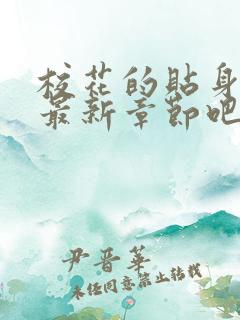 校花的贴身
最新章节吧
尹晋华
未经同意禁止转载